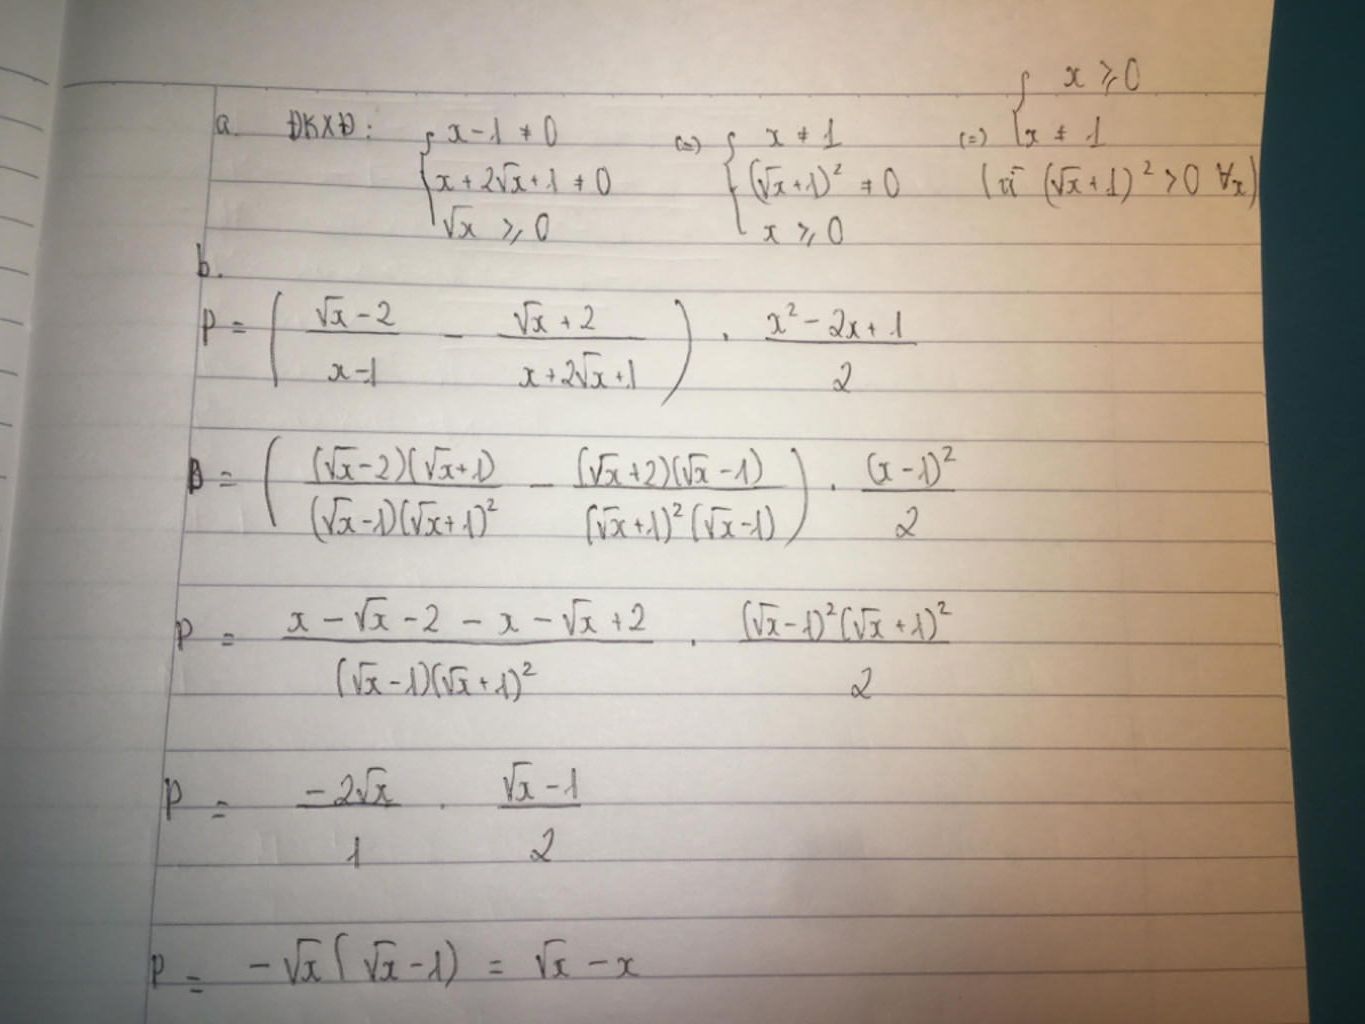 a. ĐKXĐ: { x-1 ≠ 0 (=) { x ≠ 1 (=) { x ⩾ 0
x+2√x+1 ≠ 0 (√x+1)² ≠ 0 x ≠ 1
√x ⩾ 0 x ⩾ 0 (vì (√x+1)² > 0 ∀x)
b.
P = ( (√x-2)/(x-1) - (√x+2)/(x+2√x+1) ) . (x²-2x+1)/2
P = ( ((√x-2)(√x+1))/((√x-1)(√x+1)²) - ((√x+2)(√x-1))/((√x+1)²(√x-1)) ) . (x-1)²/2
P = (x-√x-2-x-√x+2)/((√x-1)(√x+1)²) . ((√x-1)²(√x+1)²)/2
P = (-2√x)/1 . (√x-1)/2
P = -√x(√x-1) = √x-x